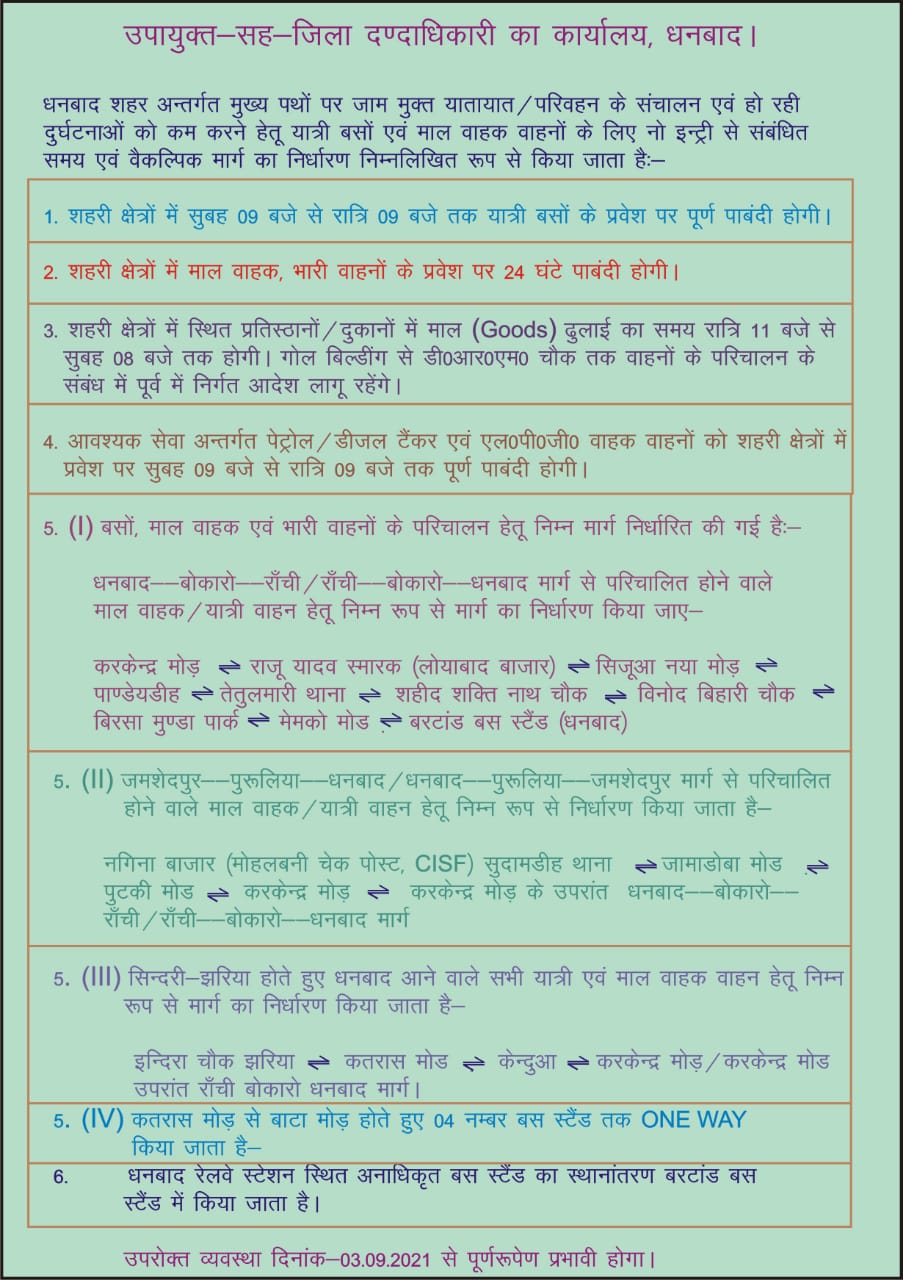 उपायुक्त–सह–जिला दण्दाधिकारी का कार्यालय, धनबाद।
धनबाद शहर अन्तर्गत मुख्य पथों पर जाम मुक्त यातायात/परिवहन के संचालन एवं हो रही
दुर्घटनाओं को कम करने हेतू यात्री बसों एवं माल वाहक वाहनों के लिए नो इन्ट्री से संबंधित
समय एवं वैकल्पिक मार्ग का निर्धारण निम्नलिखित रूप से किया जाता हैः–
1. शहरी क्षेत्रों में सुबह 09 बजे से रात्रि 09 बजे तक यात्री बसों के प्रवेश पर पूर्ण पाबंदी होगी।
2. शहरी क्षेत्रों में माल वाहक, भारी वाहनों के प्रवेश पर 24 घंटे पाबंदी होगी।
3. शहरी क्षेत्रों में स्थित प्रतिस्ठानों/दुकानों में माल (Goods) ढुलाई का समय रात्रि 11 बजे से
सुबह 08 बजे तक होगी। गोल बिल्डींग से डी0आर0एम0 चौक तक वाहनों के परिचालन के
संबंध में पूर्व में निर्गत आदेश लागू रहेंगे।
4. आवश्यक सेवा अन्तर्गत पेट्रोल/डीजल टैंकर एवं एल0पी0जी0 वाहक वाहनों को शहरी क्षेत्रों में
प्रवेश पर सुबह 09 बजे से रात्रि 09 बजे तक पूर्ण पाबंदी होगी।
5. (I) बसों, माल वाहक एवं भारी वाहनों के परिचालन हेतू निम्न मार्ग निर्धारित की गई हैः–
धनबाद––बोकारो––राँची/राँची––बोकारो––धनबाद मार्ग से परिचालित होने वाले
माल वाहक/यात्री वाहन हेतू निम्न रूप से मार्ग का निर्धारण किया जाए–
करकेन्द्र मोड़ ⇌ राजू यादव स्मारक (लोयाबाद बाजार) ⇌ सिजूआ नया मोड़ ⇌
पाण्डेयडीह ⇌ तेतुलमारी थाना ⇌ शहीद शक्ति नाथ चौक ⇌ विनोद बिहारी चौक ⇌
बिरसा मुण्डा पार्क ⇌ मेमको मोड ⇌ बरटांड बस स्टैंड (धनबाद)
5. (II) जमशेदपुर––पुरूलिया––धनबाद/धनबाद––पुरूलिया––जमशेदपुर मार्ग से परिचालित
होने वाले माल वाहक/यात्री वाहन हेतू निम्न रूप से निर्धारण किया जाता है–
नगिना बाजार (मोहलबनी चेक पोस्ट, CISF) सुदामडीह थाना ⇌ जामाडोबा मोड ⇌
पुटकी मोड ⇌ करकेन्द्र मोड़ ⇌ करकेन्द्र मोड़ के उपरांत धनबाद––बोकारो––
राँची/राँची––बोकारो––धनबाद मार्ग
5. (III) सिन्दरी–झरिया होते हुए धनबाद आने वाले सभी यात्री एवं माल वाहक वाहन हेतू निम्न
रूप से मार्ग का निर्धारण किया जाता है–
इन्दिरा चौक झरिया ⇌ कतरास मोड ⇌ केन्दुआ ⇌ करकेन्द्र मोड़/करकेन्द्र मोड
उपरांत राँची बोकारो धनबाद मार्ग।
5. (IV) कतरास मोड़ से बाटा मोड़ होते हुए 04 नम्बर बस स्टैंड तक ONE WAY
किया जाता है–
6. धनबाद रेलवे स्टेशन स्थित अनाधिकृत बस स्टैंड का स्थानांतरण बरटांड बस
स्टैंड में किया जाता है।
उपरोक्त व्यवस्था दिनांक–03.09.2021 से पूर्णरूपेण प्रभावी होगा।